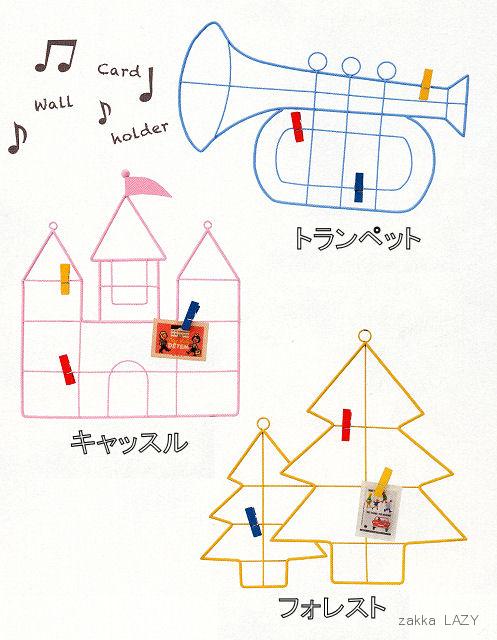 Card
Wall
holder
トランペット
キャッスル
フォレスト
zakka LAZY